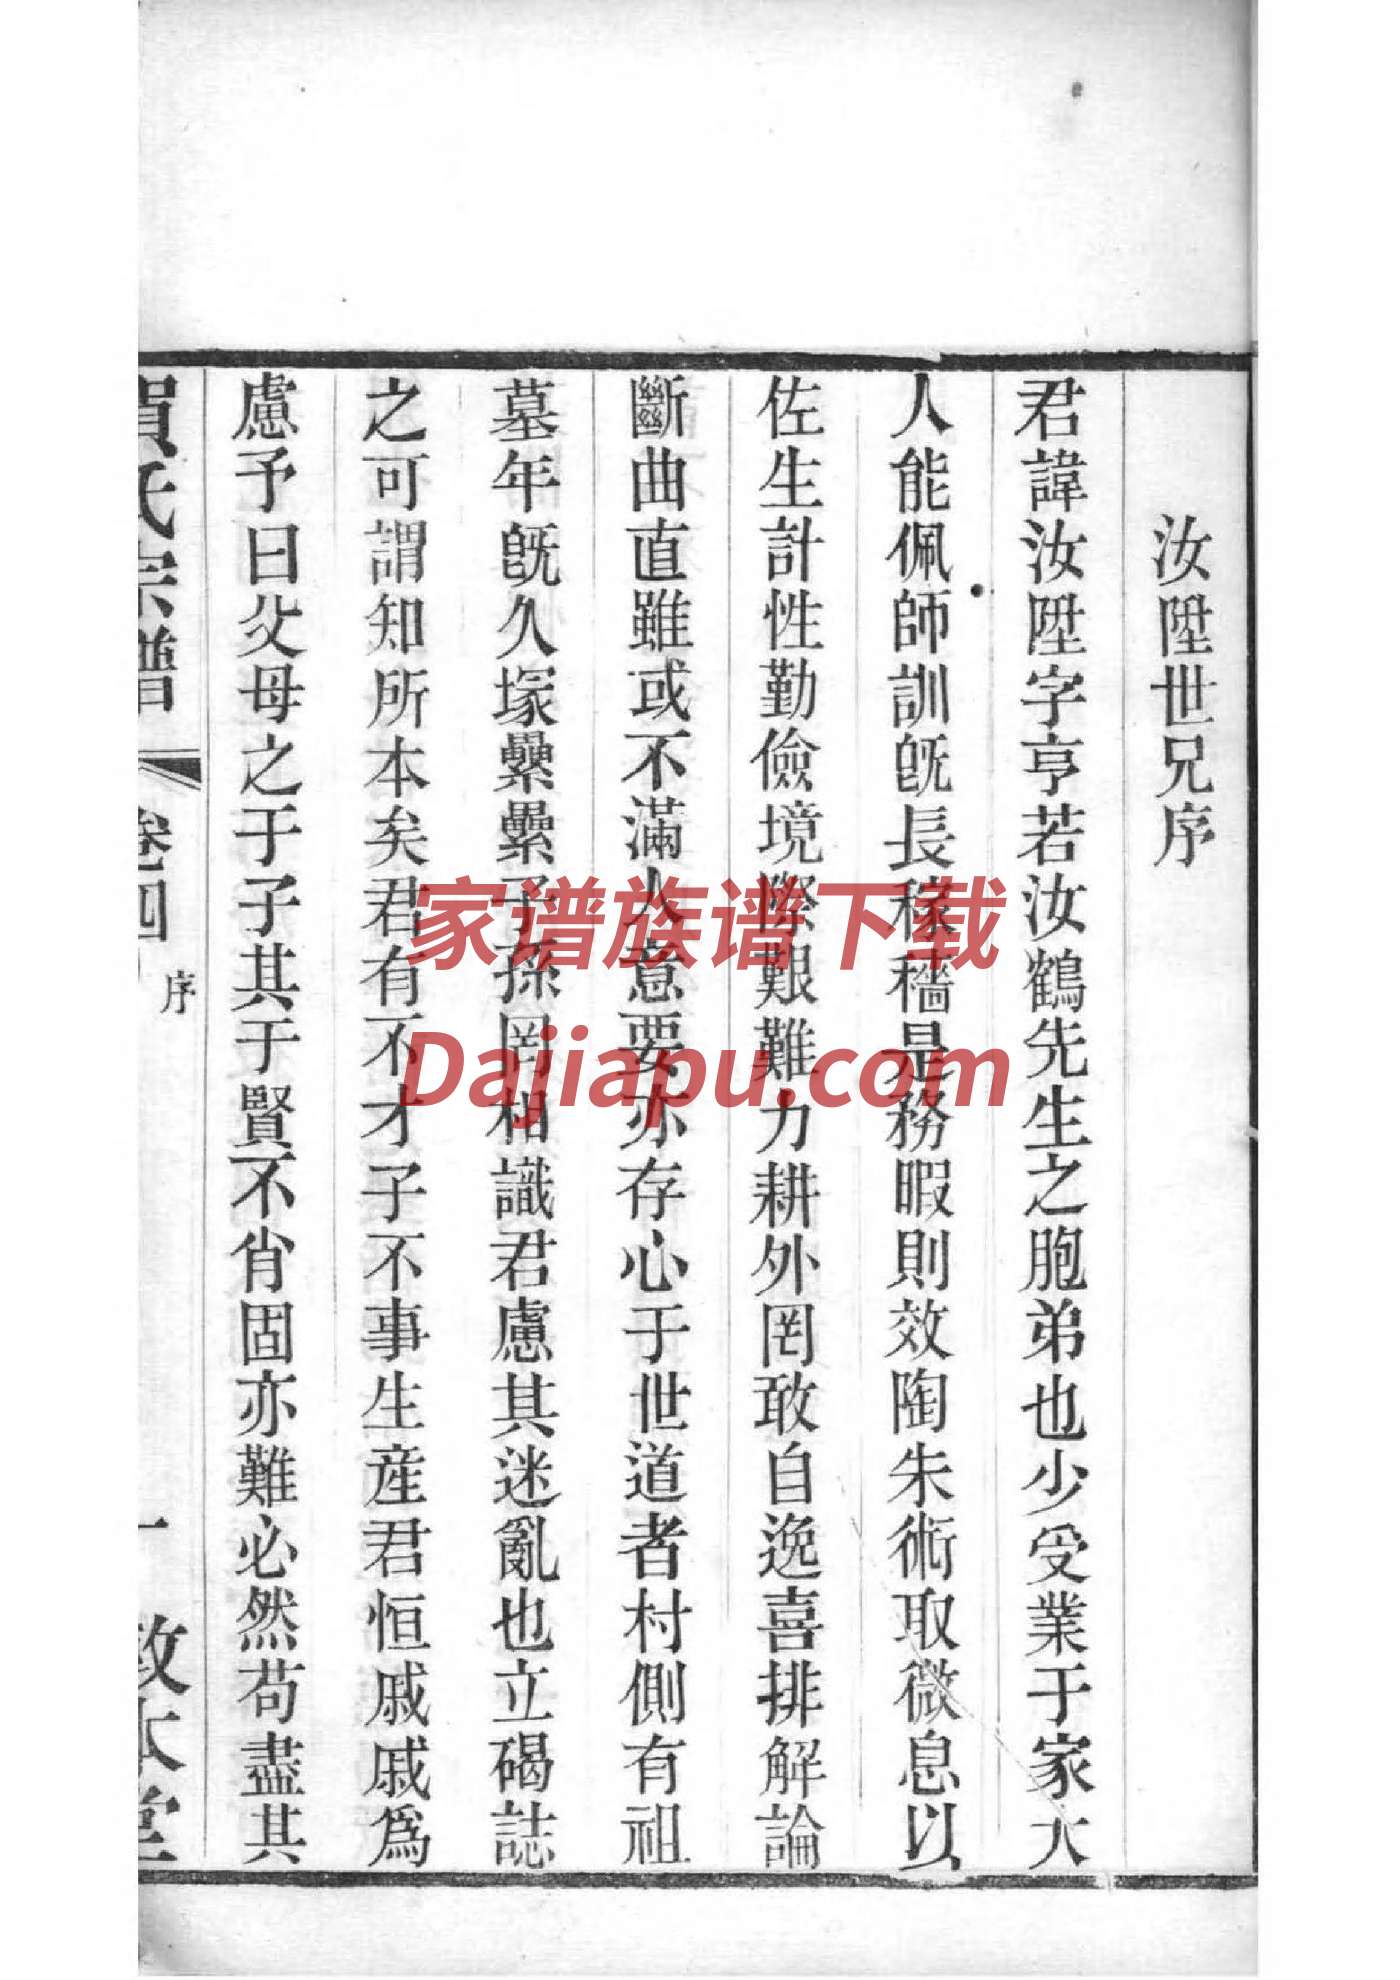 汝陞世兄序
君諱汝陞字亨若汝鶴先生之胞弟也少受業于家大
人能佩師訓旣長稼穡是務暇則效陶朱術取微息以
佐生計性勤儉境際艱難力耕外罔敢自逸喜排解論
斷曲直雖或不滿人意要亦存心于世道者村側有祖
墓年旣久塚纍纍子孫罔相識君慮其迷亂也立碣誌
之可謂知所本矣君有不才子不事生産君恒戚戚爲
慮予曰父母之于子其于賢不肖固亦難必然苟盡其
賀氏宗譜 卷四 序 一 敦本堂
家谱族谱下载
Dajiapu.com